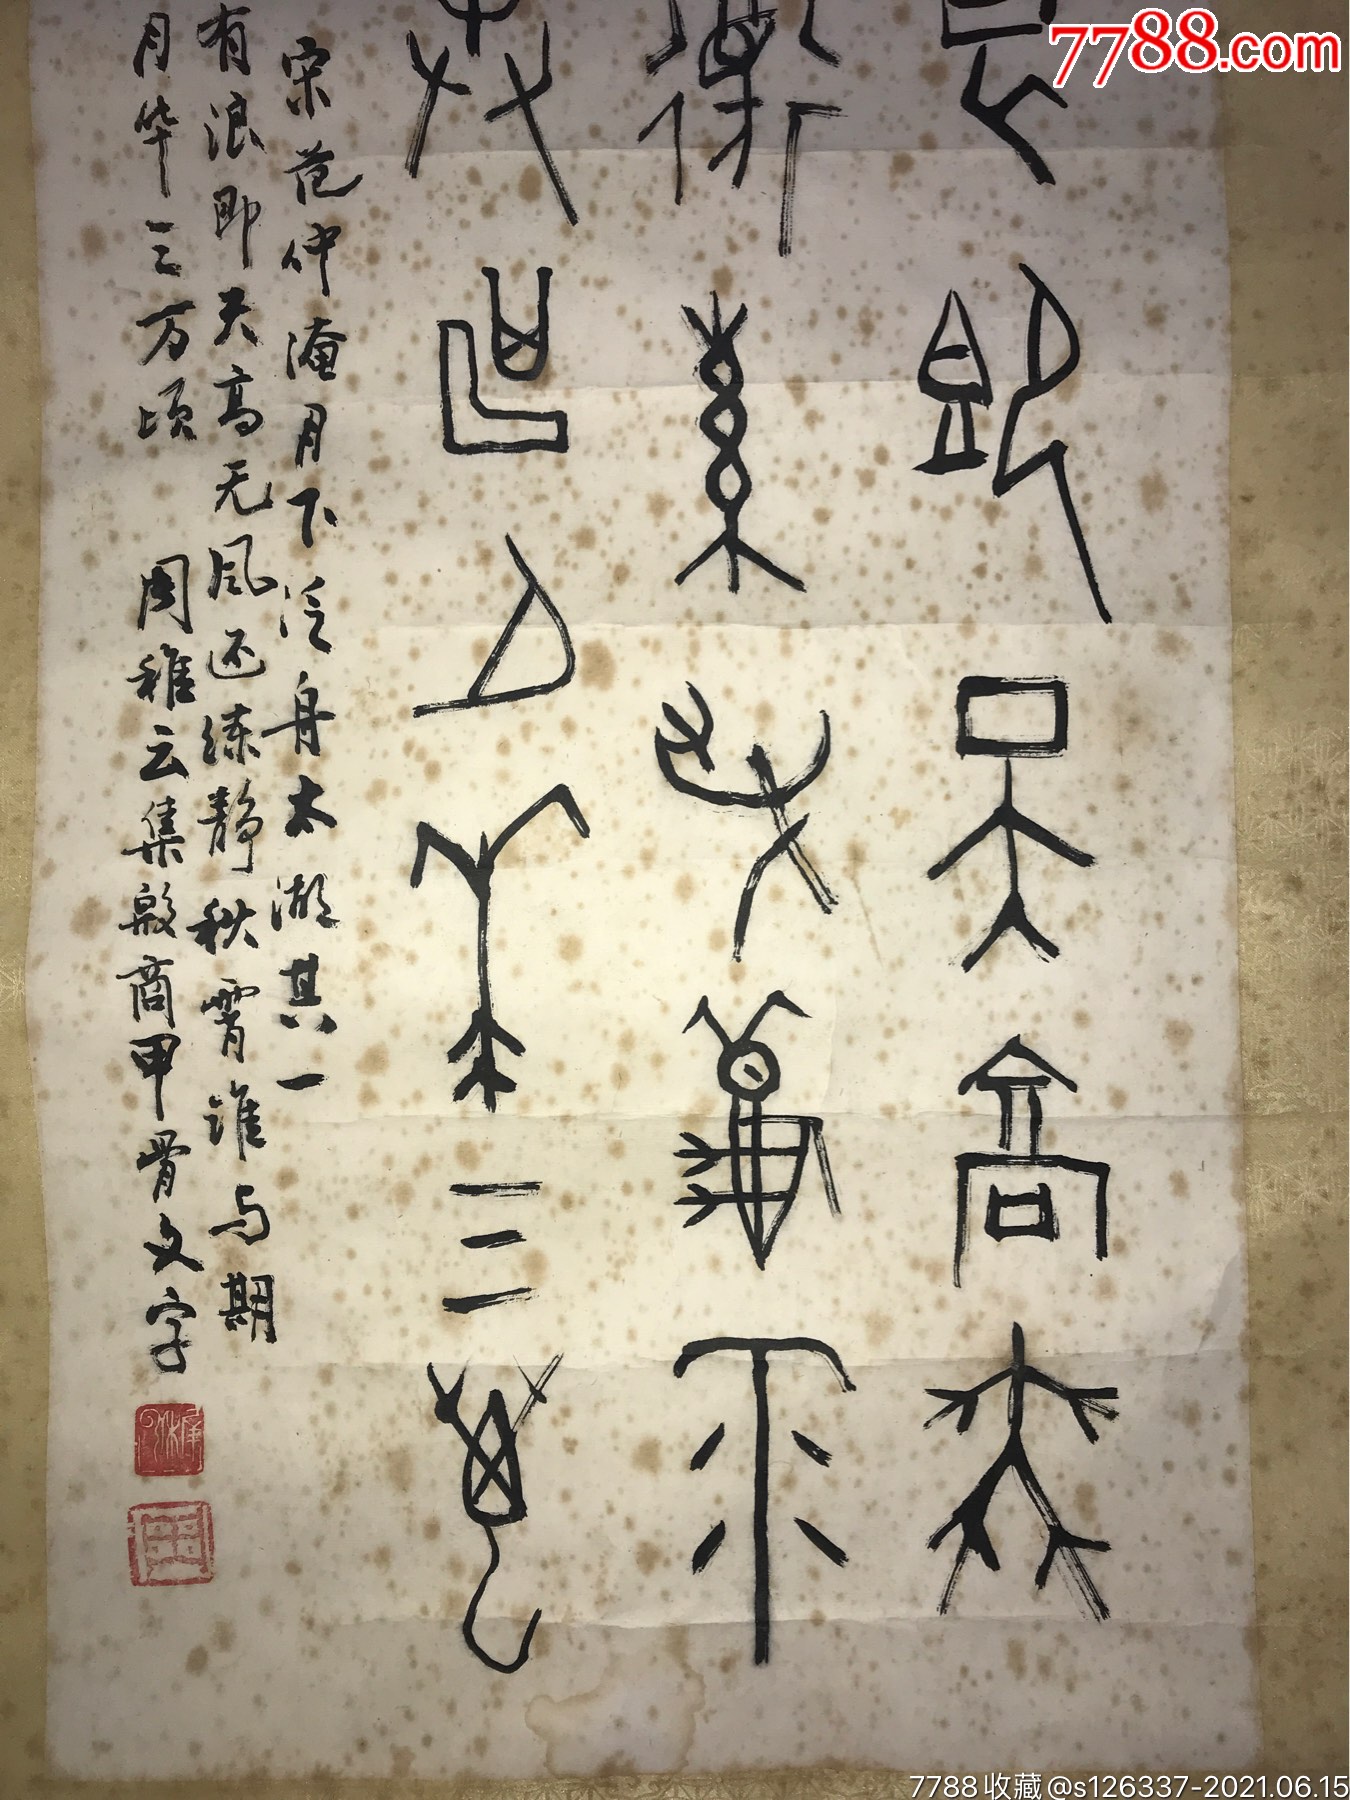 7788.com
浪即天高无
还练静秋霄
与期月华三万
宋范仲淹月下泛舟太湖其一
有浪即天高无风还练静秋霄谁与期
月华三万顷 周稚云集殷商甲骨文字
7788收藏@s126337-2021.06.15